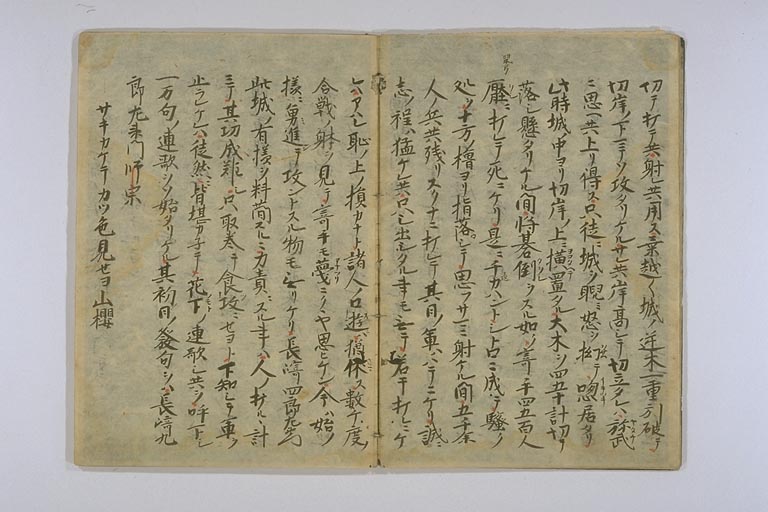 切テ打テ共射レ共用ス乗越く城ノ逆木一重引破テ
切岸ノ下ニソ攻タリケルサレ共岸高シテ切立タレハ矢武
ニ思ヘ共上リ得ス只徒ニ城ヲ睨ミ怒ヲ抑テ喘居タリ
此時城中ヨリ切岸ノ上ニ横置タル大木ヲ四五十計切テ
落シ懸タリケル間将碁倒ヲスル如ク寄手四五百人
壓ニ打レテ死ニケリ是ニチカハントシトロニ成テ騒ク
処ヲ十方ノ櫓ヨリ指落シテ思フサマニ射ケル間五千余
人ノ兵共残リスクナニ打レテ其日ノ軍ハテニケリ誠ニ
志ノ程ハ猛ケレ共只シ出シタル事モ無テ若干打レニケ
レハアハレ恥ノ上ノ損カナト諸人ノ口遊ハ猶休ス数ケ度ノ
合戦ノ躰ヲ見テ寄手モ蔑ニクヤ思ヒケン今ハ始ノ
様ニ勇進テ攻ントスル物モ無リケリ長崎四郎左衛門
此城ノ有様ヲ料簡スルニ力責ニスル事ハ人ノ打ルヽ計
ニテ其功成難シ只取巻テ食攻ニセヨト下知シテ軍ヲ
止ラレケレハ徒然ニ皆堪カネテ花下ノ連歌シ共ヲ呼下シ
一万句ノ連歌ヲソ始タリケル其初日ノ發句ヲハ長崎九
郎左衛門師宗
サキカケテカツ色見セヨ山櫻